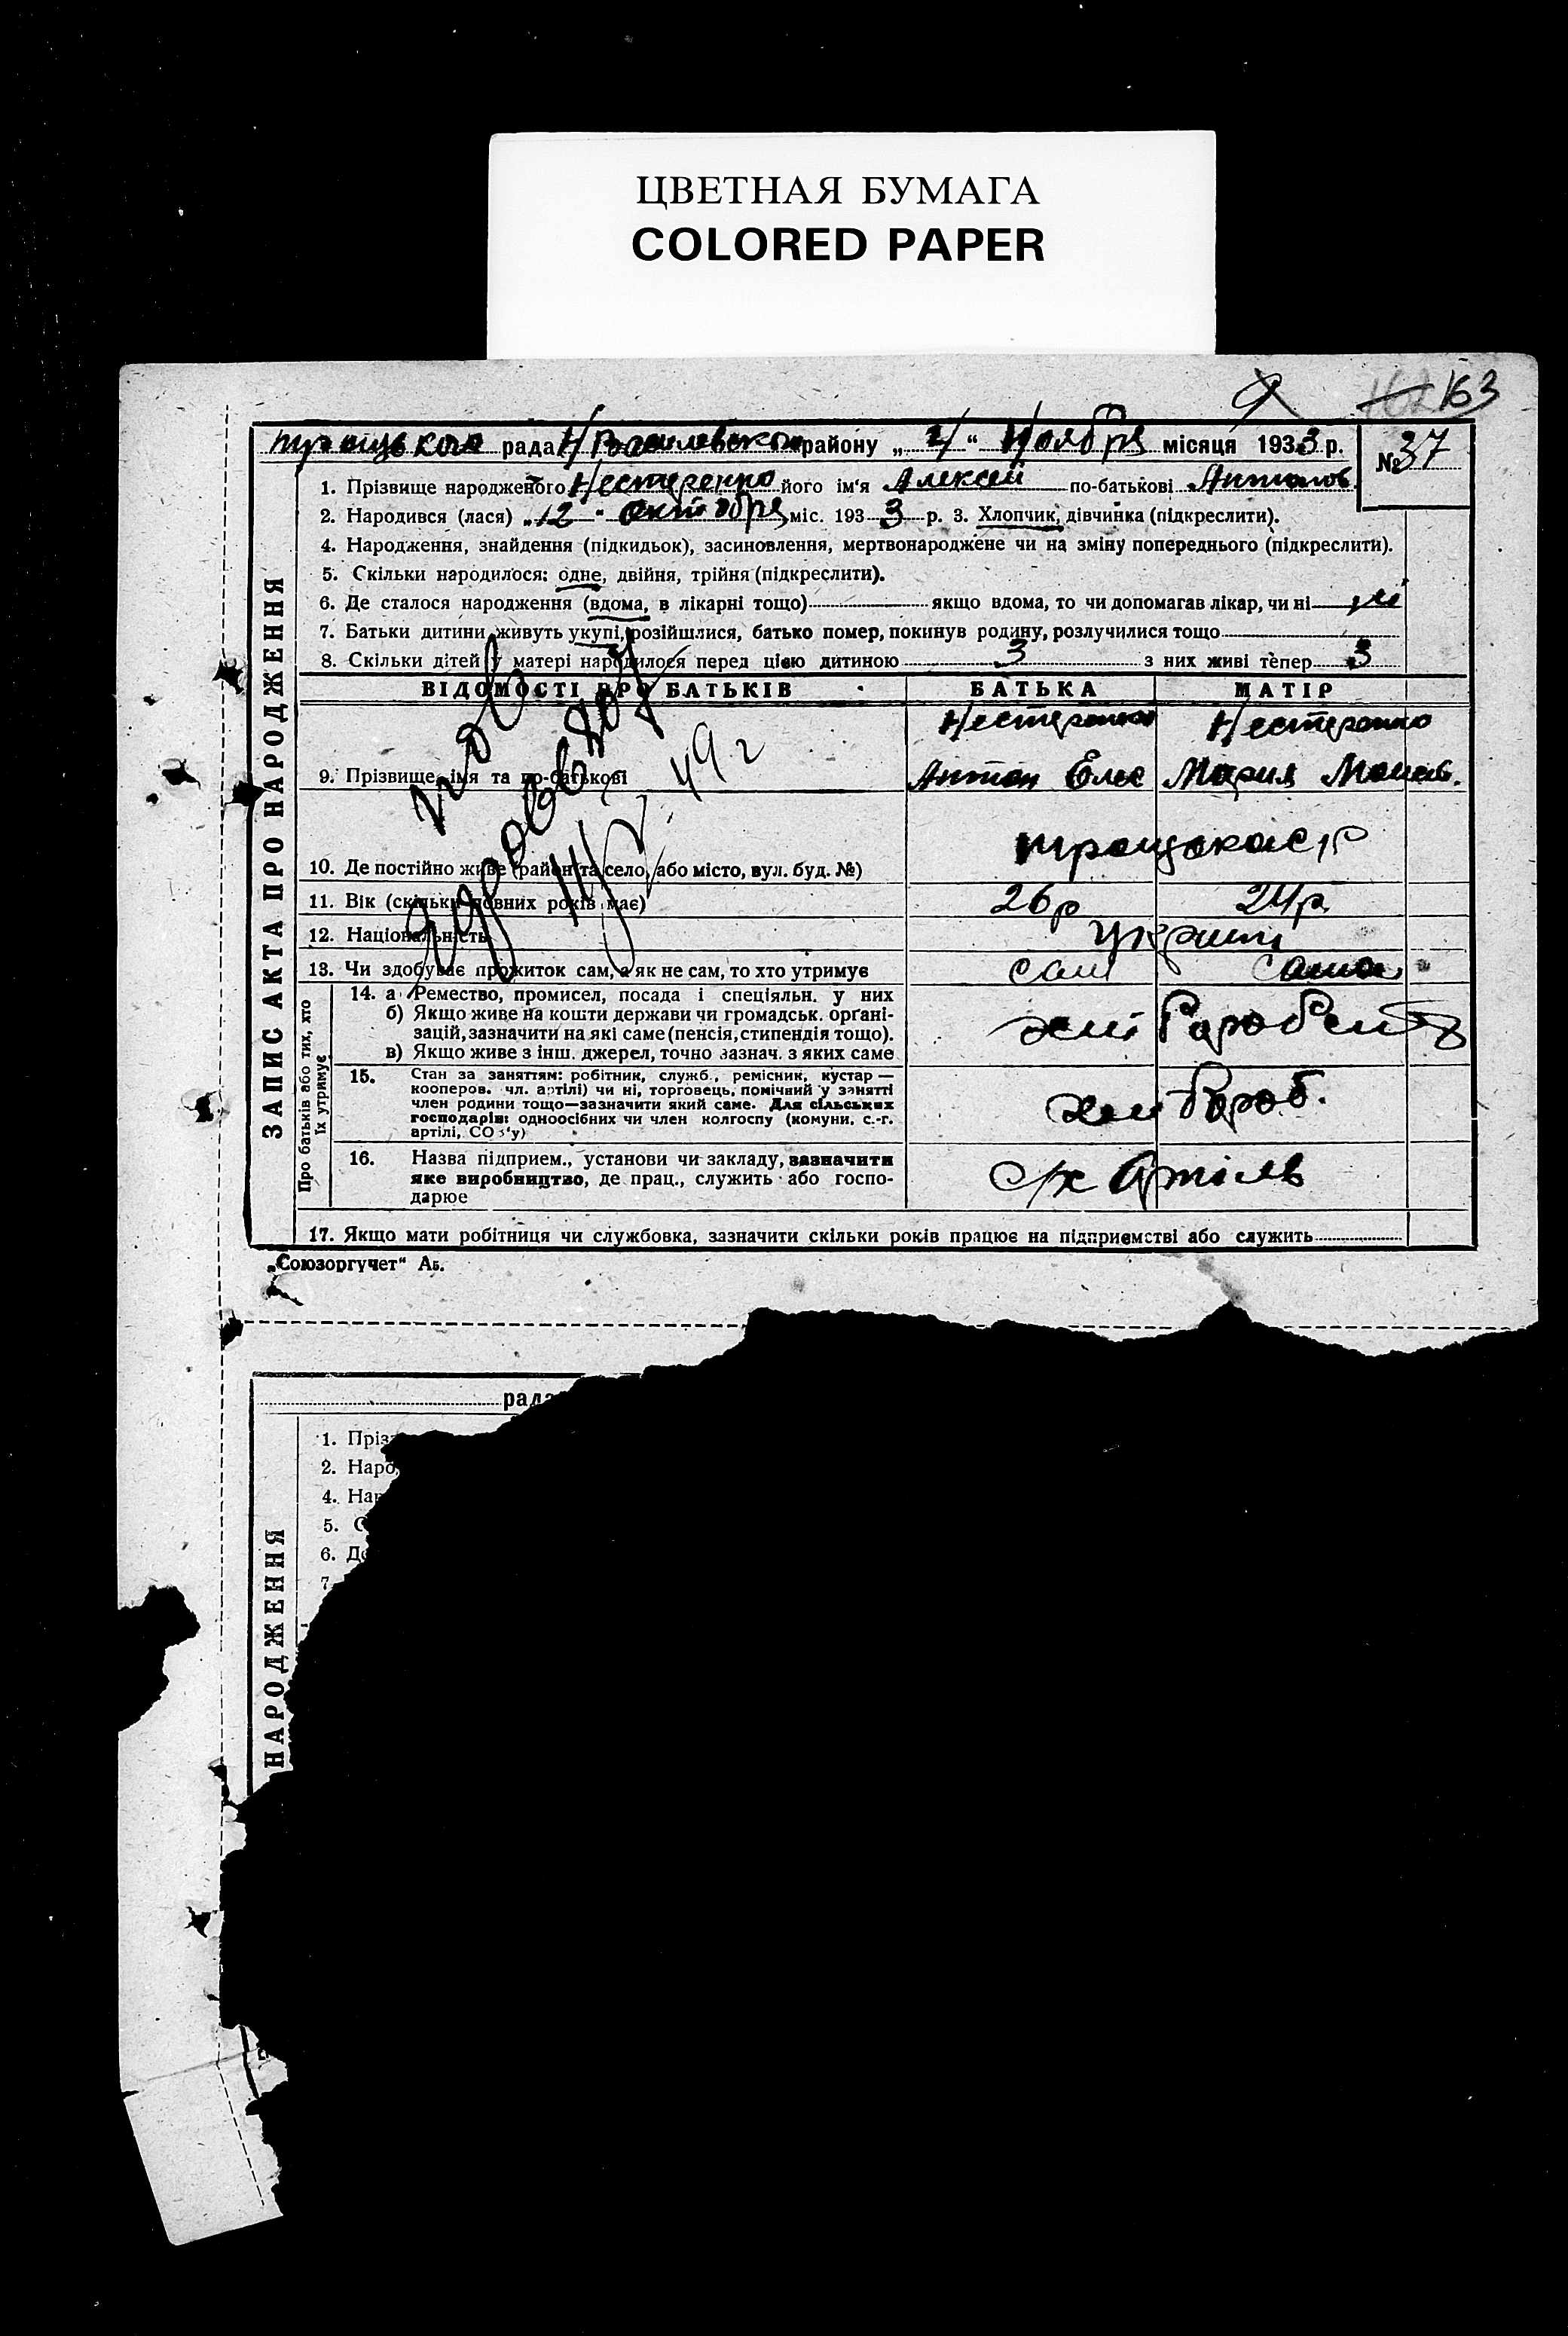 ЦВЕТНАЯ БУМАГА
COLORED PAPER
163
рада Н/Василевського району „2/“ Ноября місяця 1933 р.
№ 37
ЗАПИС АКТА ПРО НАРОДЖЕННЯ
1. Прізвище народженого Нестеренко його ім'я Алексей по-батькові Антонов.
2. Народився (лася) „12“ октобря міс. 1933 р. 3. Хлопчик, дівчинка (підкреслити).
4. Народження, знайдення (підкидьок), засиновлення, мертвонароджене чи на зміну попереднього (підкреслити).
5. Скільки народилося: одне, двійня, трійня (підкреслити).
6. Де сталося народження (вдома, в лікарні тощо) якщо вдома, то чи допомагав лікар, чи ні ні
7. Батьки дитини живуть укупі, розійшлися, батько помер, покинув родину, розлучилися тощо
8. Скільки дітей у матері народилося перед цією дитиною 3 з них живі тепер 3
ВІДОМОСТІ ПРО БАТЬКІВ БАТЬКА МАТІР
Нестеренко Нестеренко
9. Прізвище, імя та по-батькові Антон Мария
49 г
10. Де постійно живе (район та село, або місто, вул. буд. №)
11. Вік (скільки повних років має) 26 р 24 р.
12. Національність
13. Чи здобуває прожиток сам, а як не сам, то хто утримує сам сама
Про батьків або тих, хто їх утримує
14. а) Ремество, промисел, посада і спеціяльн. у них
б) Якщо живе на кошти держави чи громадськ. орґані-
зацій, зазначити на які саме (пенсія, стипендія тощо).
в) Якщо живе з інш. джерел, точно зазнач. з яких саме
15. Стан за заняттям: робітник, служб., ремісник, кустар —
кооперов. чл. артілі) чи ні, торговець, помічний у занятті
член родини тощо—зазначити який саме. Для сільських
господарів: одноосібних чи член колгоспу (комуни, с.-г.
артілі, СОЗ'у)
16. Назва підприєм., установи чи закладу, зазначити
яке виробництво, де прац., служить або госпо-
дарює
с/х Артіль
17. Якщо мати робітниця чи службовка, зазначити скільки років працює на підприємстві або служить
„Союзоргучет“ Аб.
рада
1. Пріз
2. Наро
4. На
5. С
6. Де
7.
НАРОДЖЕННЯ